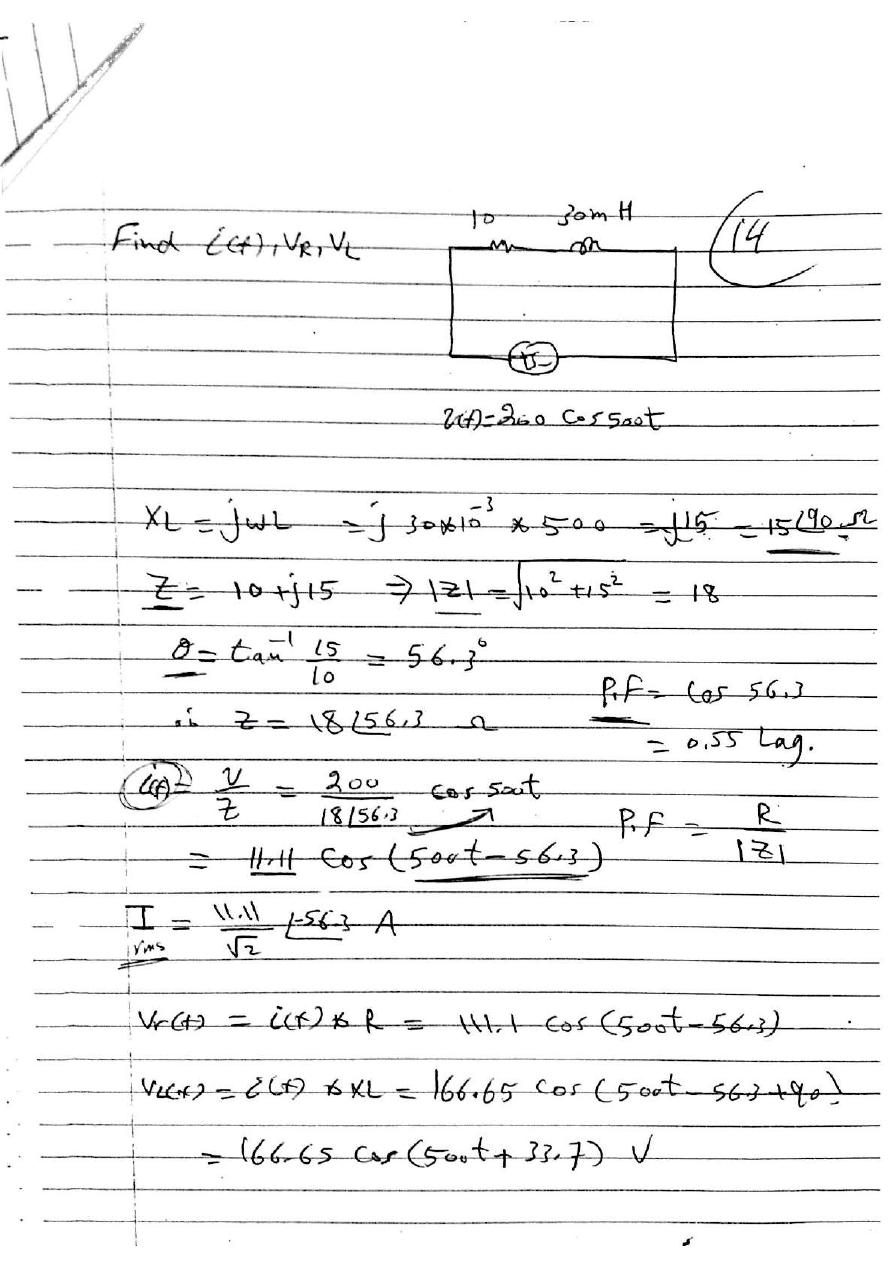 10 30mH
Find i(t), VR, VL
14
v(t) = 200 cos 500t
XL = jωL = j 30*10^-3 * 500 = j15 = 15∠90 Ω
Z = 10 + j15 ⇒ |Z| = √10² + 15² = 18
θ = tan^-1 15/10 = 56.3°
P.F = Cos 56.3
Z = 18∠56.3 Ω
= 0.55 Lag.
i(t) = V/Z = 200/18∠56.3 cos 500t
P.F = R/|Z|
= 11.11 Cos (500t - 56.3)
I rms = 11.11/√2 ∠-56.3 A
Vr(t) = i(t) * R = 111.1 cos (500t - 56.3)
VL(t) = i(t) * XL = 166.65 cos (500t - 56.3 + 90)
= 166.65 cos (500t + 33.7) V